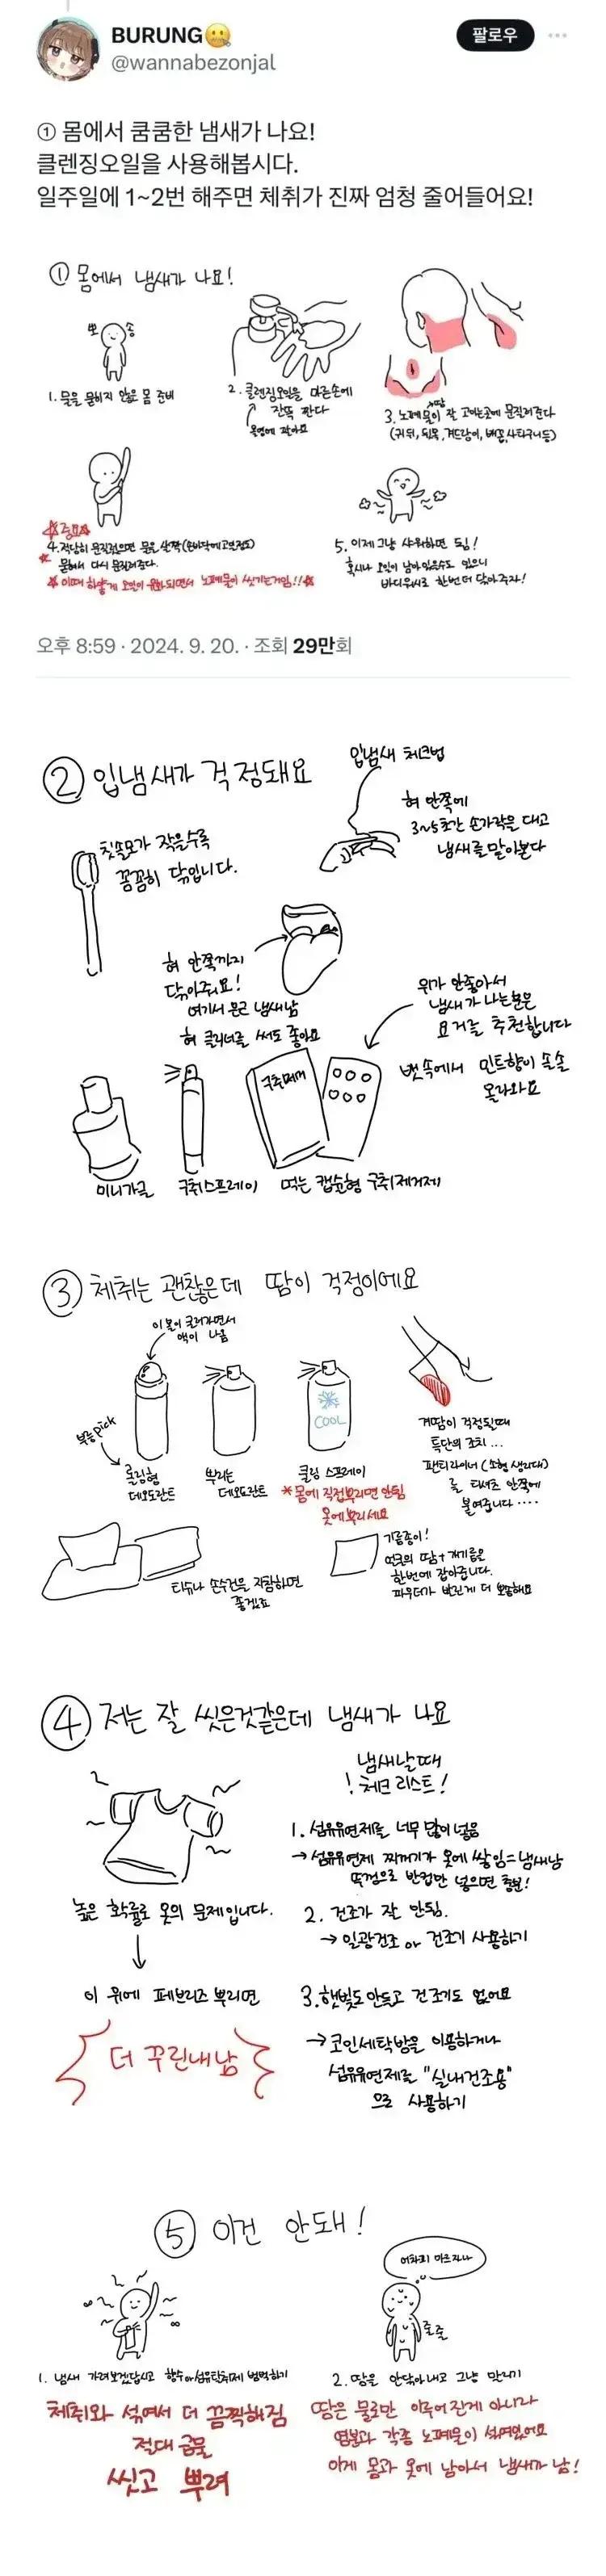 BURUNG🤐
@wannabezonjal
팔로우
① 몸에서 쿰쿰한 냄새가 나요!
클렌징오일을 사용해봅시다.
일주일에 1~2번 해주면 체취가 진짜 엄청 줄어들어요!
① 몸에서 냄새가 나요!
뽀 송
1. 물을 묻히지 않은 몸 준비
2. 클렌징오일을 마른손에
잔뜩 짠다
3. 노폐물이 잘 고이는곳에 문질러준다
(귀 뒤, 뒷목, 겨드랑이, 배꼽, 사타구니등)
☆중요☆
4. 적당히 문질렀으면 물을 살짝(손바닥에고일정도)
묻혀서 다시 문질러준다.
☆이때 하얗게 오일이 유화되면서 노폐물이 씻기는거임!!☆
5. 이제 그냥 샤워하면 됨!
혹시나 오일이 남아있을수도 있으니
바디워시로 한번 더 닦아주자!
오후 8:59 · 2024. 9. 20. · 조회 29만회
② 입냄새가 걱정돼요
입냄새 체크법
혀 안쪽에
3~5초간 손가락을 대고
냄새를 맡아본다
칫솔모가 작을수록
꼼꼼히 닦입니다.
혀 안쪽까지
닦아주세요!
여기서 은근 냄새남
혀 클리너를 써도 좋아요
위가 안좋아서
냄새가 나는분은
요거를 추천합니다
뱃속에서 민트향이 솔솔
올라와요
구취제거
미니가글
구취스프레이
먹는 캡슐형 구취제거제
③ 체취는 괜찮은데 땀이 걱정이에요
이 볼이 굴러가면서
액이 나옴
부릉pick
롤링형
데오도란트
뿌리는
데오도란트
COOL
쿨링 스프레이
*몸에 직접뿌리면 안됨
옷에뿌리세요
겨땀이 걱정될때
특단의 조치...
팬티라이너(소형 생리대)
를 티셔츠 안쪽에
붙여줍니다....
티슈나 손수건을 지참하면
좋겠죠
기름종이!
얼굴의 땀+개기름을
한번에 잡아줍니다.
파우더가 발린게 더 뽀송해요
④ 저는 잘 씻은것같은데 냄새가 나요
냄새날때
!체크리스트!
1. 섬유유연제를 너무 많이 넣음
→ 섬유유연제 찌꺼기가 옷에 쌓임=냄새남
뚜껑으로 반컵만 넣으면 충분!
높은 확률로 옷의 문제입니다.
2. 건조가 잘 안됨.
→ 일광건조 or 건조기 사용하기
이 위에 페브리즈 뿌리면
더 꾸린내남
3. 햇빛도 안들고 건조기도 없어요
→ 코인세탁방을 이용하거나
섬유유연제를 "실내건조용"
으로 사용하기
⑤ 이건 안돼!
어차피 마르자나
줄줄
1. 냄새 가려보겠답시고 향수or섬유탈취제 범벅하기
체취와 섞여서 더 끔찍해짐
절대 금물
씻고 뿌려
2. 땀을 안닦아내고 그냥 말리기
땀은 물로만 이루어진게 아니라
염분과 각종 노폐물이 섞여있어요
이게 몸과 옷에 남아서 냄새가 남!